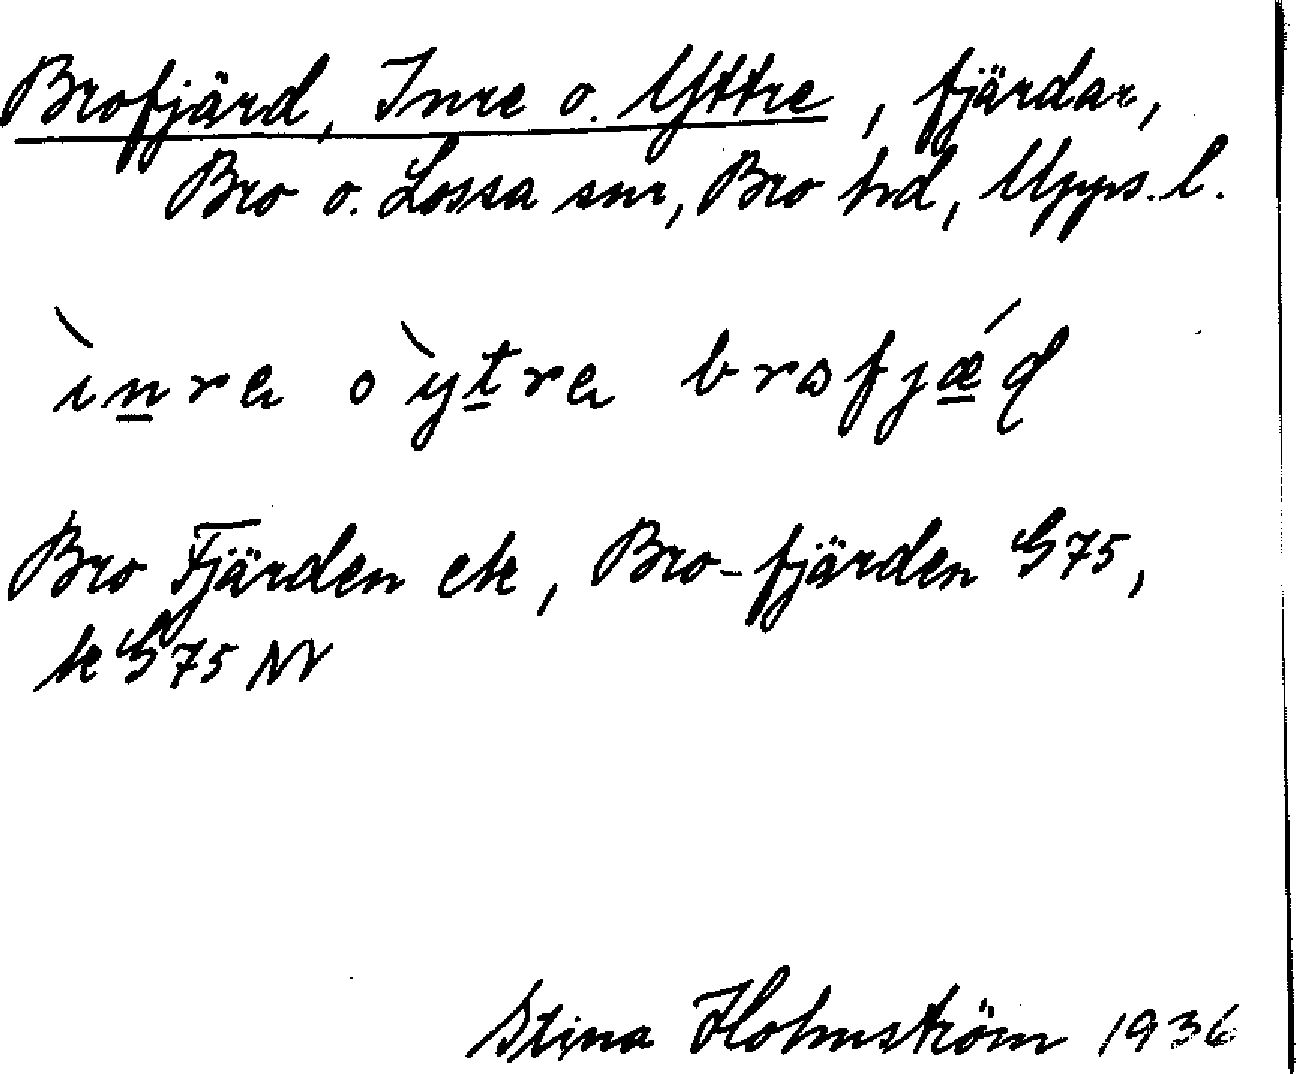 Brofjärd, Inre o. Yttre, fjärdar,
Bro o. Lossa snr, Bro hd, Upps. l.
ìn̲re o ỳt̲re brofjǽ̲ɖ
Bro Fjärden ek, Bro-fjärden G75,
k G75 NV
Stina Holmström 1936